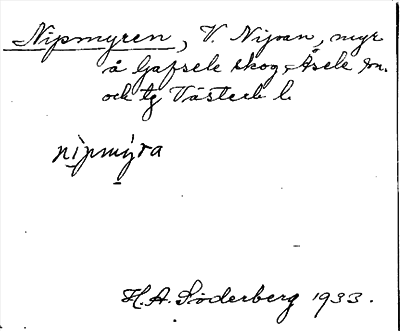 Nipmyren, V. Nipan, myr
å Gafsele skog, Åsele sn.
och tg Västerb l.
nipmýra
H.A. Söderberg 1933.